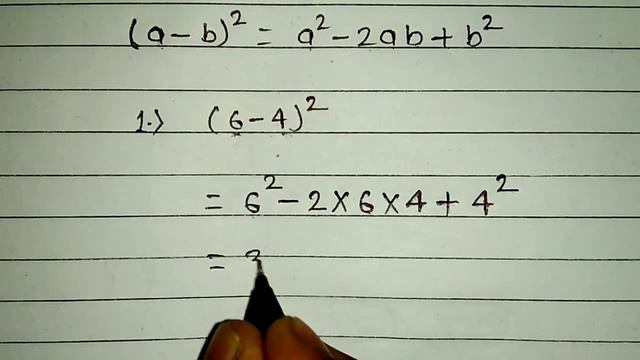 (a-b)² = a² - 2ab + b²
1.) (6-4)²
= 6² - 2×6×4 + 4²
= 3